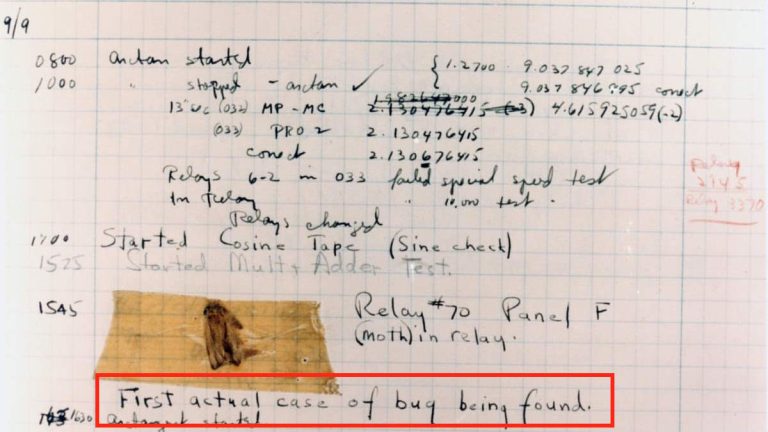 9/9
0800 arctan started
1000 " stopped - arctan ✓ { 1.2700 9.037 847 025
9.037 846 995 conect
13" UC (032) MP - MC 1.982647000
2.130476415 (-3) 4.615925059(-2)
(033) PRO 2 2.130476415
conect 2.130676415
Relays 6-2 in 033 failed special speed test
In Relay " 10,000 test.
Relays changed
Relay
2145
Relay 3370
1700 Started Cosine Tape (Sine check)
1525 Started Mult + Adder Test.
1545 Relay #70 Panel F
(moth) in relay.
First actual case of bug being found.
1630 arctangent started